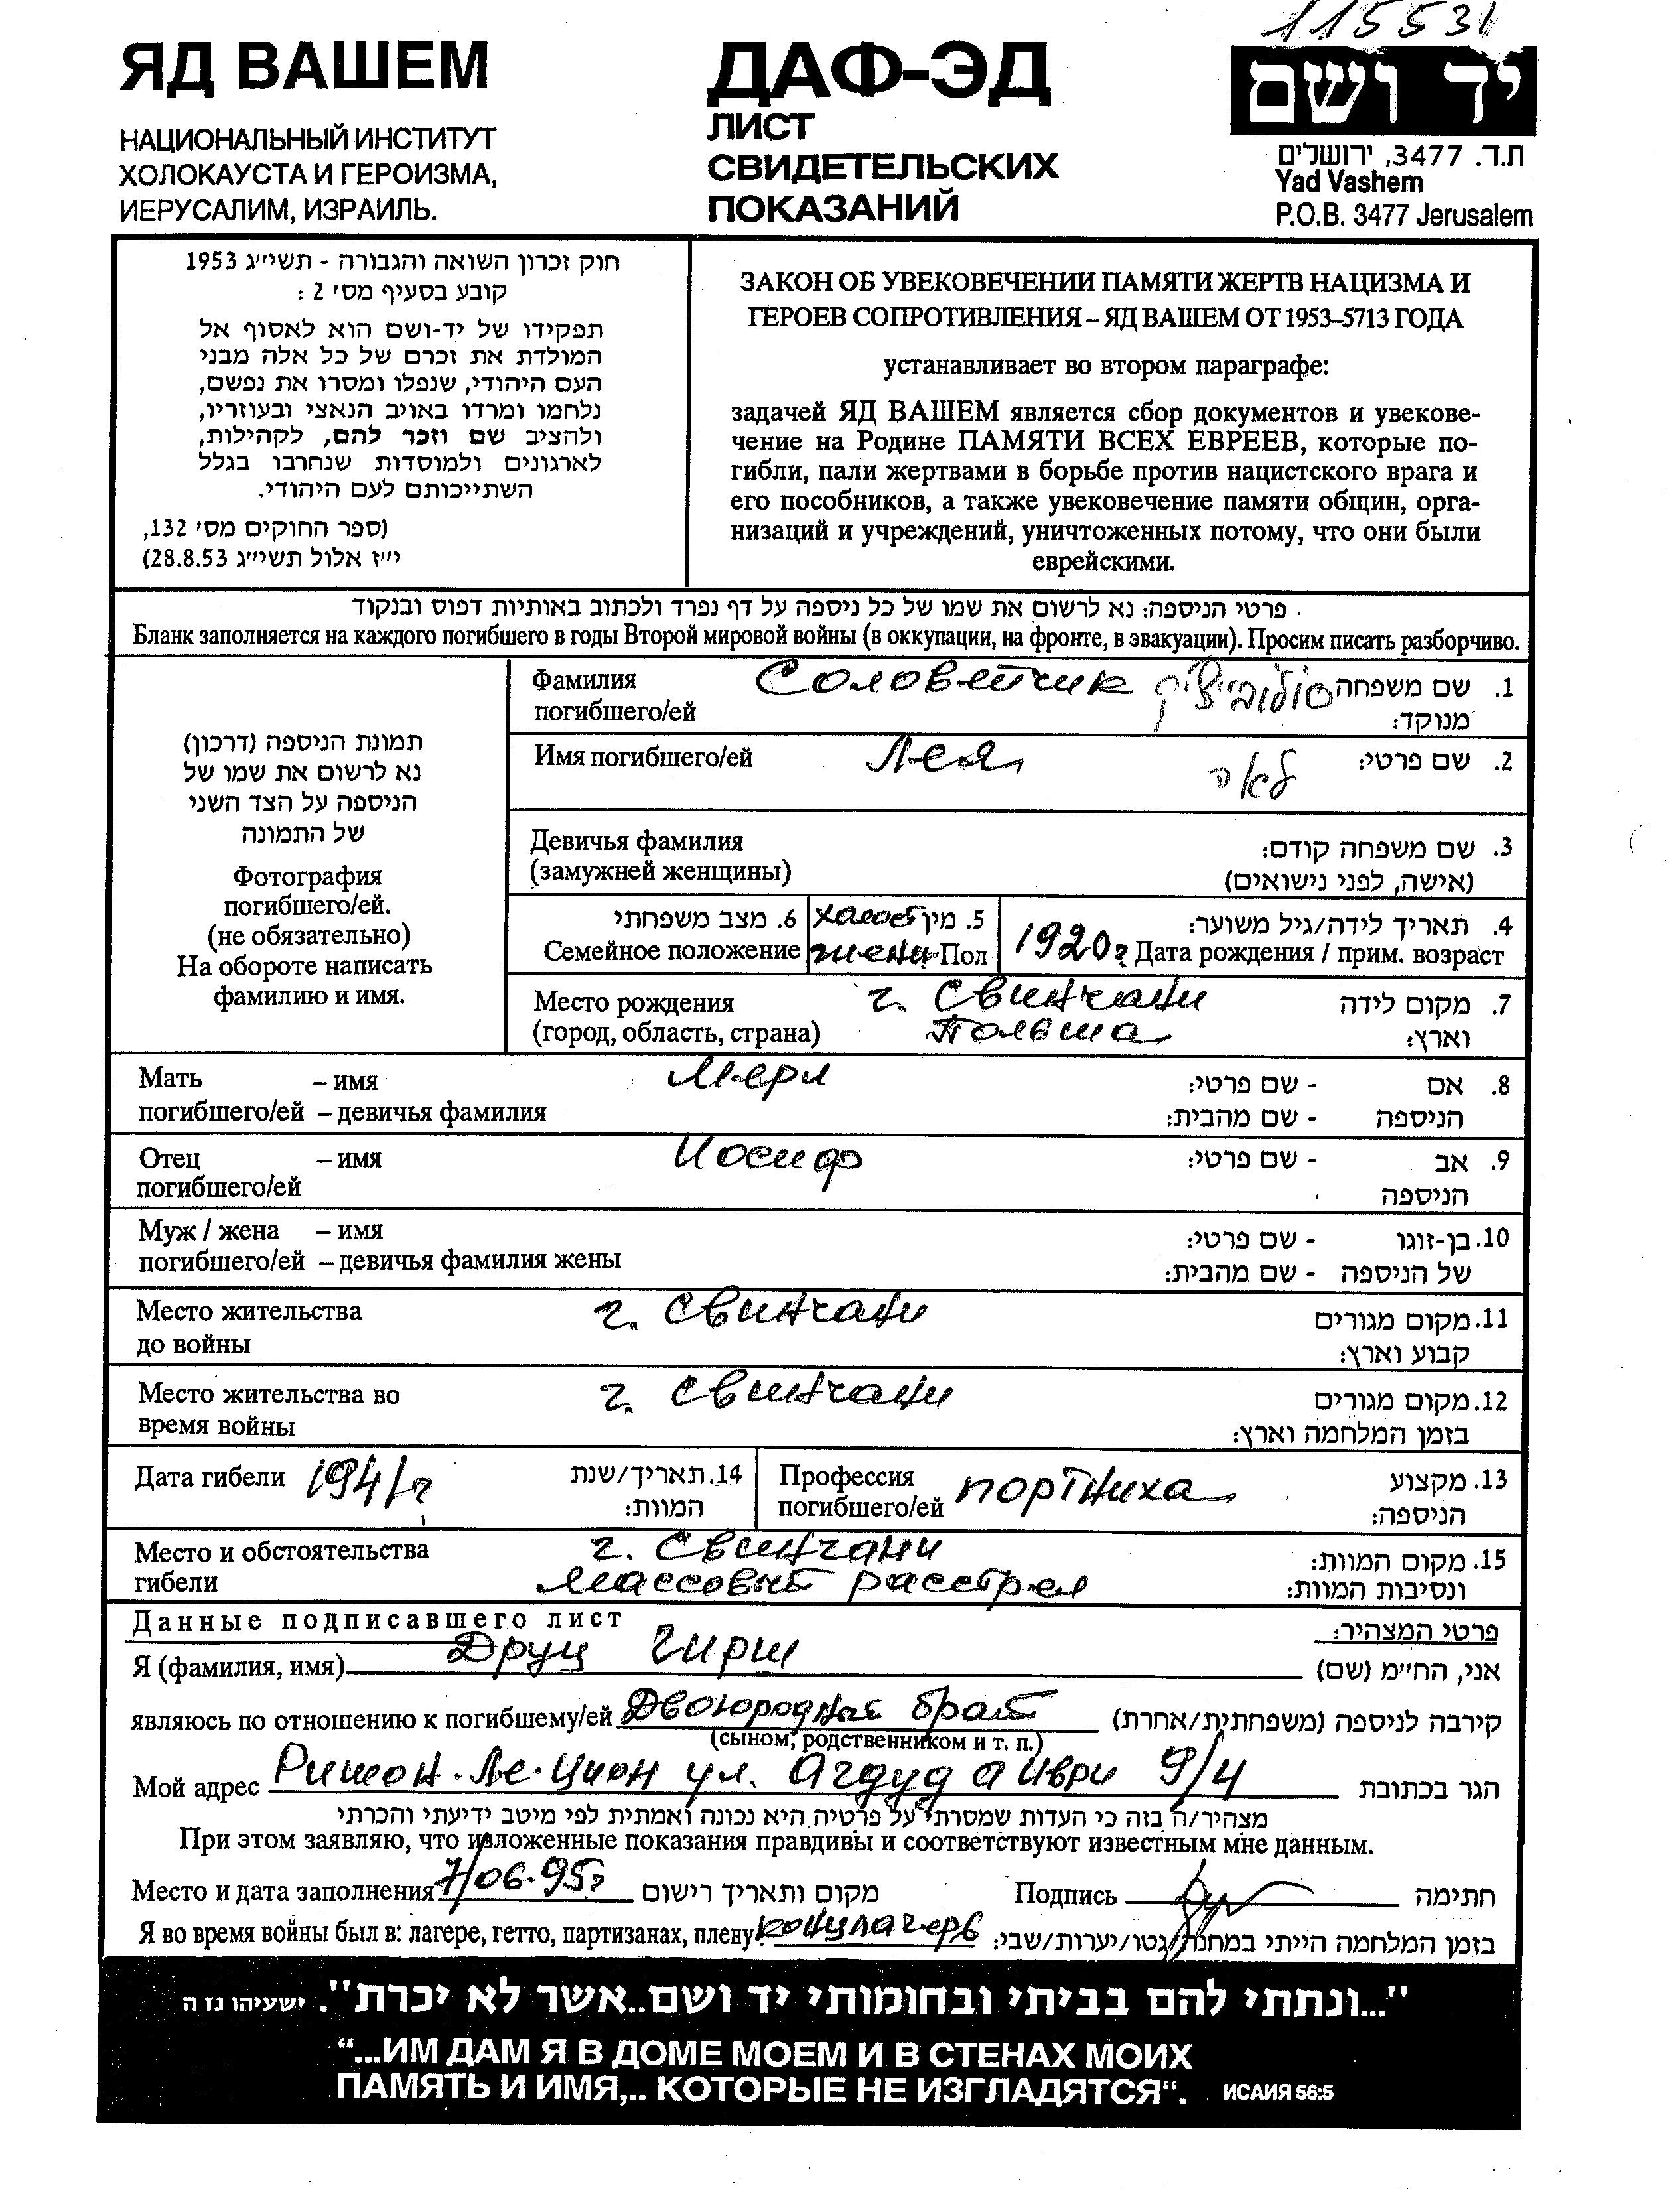 115531
ЯД ВАШЕМ
НАЦИОНАЛЬНЫЙ ИНСТИТУТ
ХОЛОКАУСТА И ГЕРОИЗМА,
ИЕРУСАЛИМ, ИЗРАИЛЬ.
ДАФ-ЭД
ЛИСТ
СВИДЕТЕЛЬСКИХ
ПОКАЗАНИЙ
יד ושם
ת.ד. 3477, ירושלים
Yad Vashem
P.O.B. 3477 Jerusalem
חוק זכרון השואה והגבורה - תשי״ג 1953
קובע בסעיף מס׳ 2 :
תפקידו של יד-ושם הוא לאסוף אל
המולדת את זכרם של כל אלה מבני
העם היהודי, שנפלו ומסרו את נפשם,
נלחמו ומרדו באויב הנאצי ובעוזריו,
ולהציב שם וזכר להם, לקהילות,
לארגונים ולמוסדות שנחרבו בגלל
השתייכותם לעם היהודי.
(ספר החוקים מס׳ 132,
י״ז אלול תשי״ג 28.8.53)
ЗАКОН ОБ УВЕКОВЕЧЕНИИ ПАМЯТИ ЖЕРТВ НАЦИЗМА И
ГЕРОЕВ СОПРОТИВЛЕНИЯ – ЯД ВАШЕМ ОТ 1953–5713 ГОДА
устанавливает во втором параграфе:
задачей ЯД ВАШЕМ является сбор документов и увекове-
чение на Родине ПАМЯТИ ВСЕХ ЕВРЕЕВ, которые по-
гибли, пали жертвами в борьбе против нацистского врага и
его пособников, а также увековечение памяти общин, орга-
низаций и учреждений, уничтоженных потому, что они были
еврейскими.
פרטי הניספה: נא לרשום את שמו של כל ניספה על דף נפרד ולכתוב באותיות דפוס ובנקוד
Бланк заполняется на каждого погибшего в годы Второй мировой войны (в оккупации, на фронте, в эвакуации). Просим писать разборчиво.
תמונת הניספה (דרכון)
נא לרשום את שמו של
הניספה על הצד השני
של התמונה
Фотография
погибшего/ей.
(не обязательно)
На обороте написать
фамилию и имя.
Фамилия Соловейчик סולובייציק 1. שם משפחה
погибшего/ей מנוקד:
Имя погибшего/ей Лея לאה 2. שם פרטי:
Девичья фамилия 3. שם משפחה קודם:
(замужней женщины) (אישה, לפני נישואים)
6. מצב משפחתי холост 5. מין 4. תאריך לידה/גיל משוער:
Семейное положение жени Пол 1920г Дата рождения / прим. возраст
Место рождения г. Свинчани 7. מקום לידה
(город, область, страна) Польша וארץ:
Мать – имя Мери 8. אם - שם פרטי:
погибшего/ей – девичья фамилия הניספה - שם מהבית:
Отец – имя Иосиф 9. אב - שם פרטי:
погибшего/ей הניספה
Муж / жена – имя 10. בן-זוגו - שם פרטי:
погибшего/ей – девичья фамилия жены של הניספה - שם מהבית:
Место жительства г. Свинчани 11. מקום מגורים
до войны קבוע וארץ:
Место жительства во г. Свинчани 12. מקום מגורים
время войны בזמן המלחמה וארץ:
Дата гибели 1941г 14. תאריך/שנת
המוות:
Профессия портниха 13. מקצוע
погибшего/ей הניספה:
Место и обстоятельства г. Свинчани 15. מקום המוות:
гибели Массовый расстрел ונסיבות המוות:
Данные подписавшего лист פרטי המצהיר:
Я (фамилия, имя) Друц Гирш אני, הח״מ (שם)
являюсь по отношению к погибшему/ей Двоюродный брат קירבה לניספה (משפחתית/אחרת)
(сыном, родственником и т. п.)
Мой адрес Ришон-Ле-Цион ул. Агдуд а Иври 9/4 הגר בכתובת
מצהיר/ה בזה כי העדות שמסרתי על פרטיה היא נכונה ואמתית לפי מיטב ידיעתי והכרתי
При этом заявляю, что изложенные показания правдивы и соответствуют известным мне данным.
Место и дата заполнения 7/06.95г מקום ותאריך רישום Подпись חתימה
Я во время войны был в: лагере, гетто, партизанах, плену: концлагерь בזמן המלחמה הייתי במחנה/גטו/יערות/שבי:
"...ונתתי להם בביתי ובחומותי יד ושם..אשר לא יכרת". ישעיהו נז ה
“...ИМ ДАМ Я В ДОМЕ МОЕМ И В СТЕНАХ МОИХ
ПАМЯТЬ И ИМЯ,.. КОТОРЫЕ НЕ ИЗГЛАДЯТСЯ“. ИСАИЯ 56:5